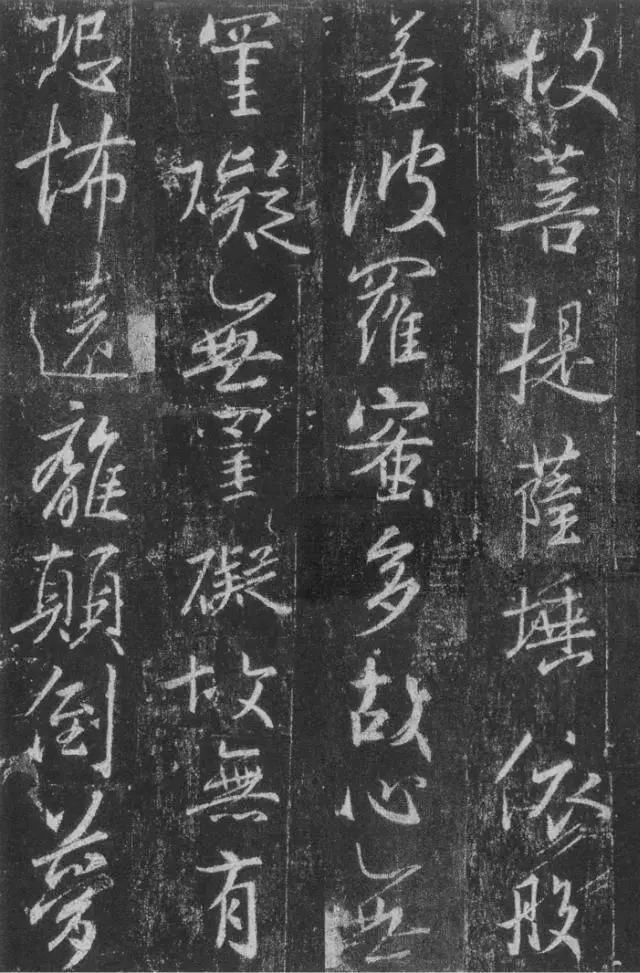 故菩提薩埵依般
若波羅蜜多故心無
罣礙無罣礙故無有
恐怖遠離顛倒夢